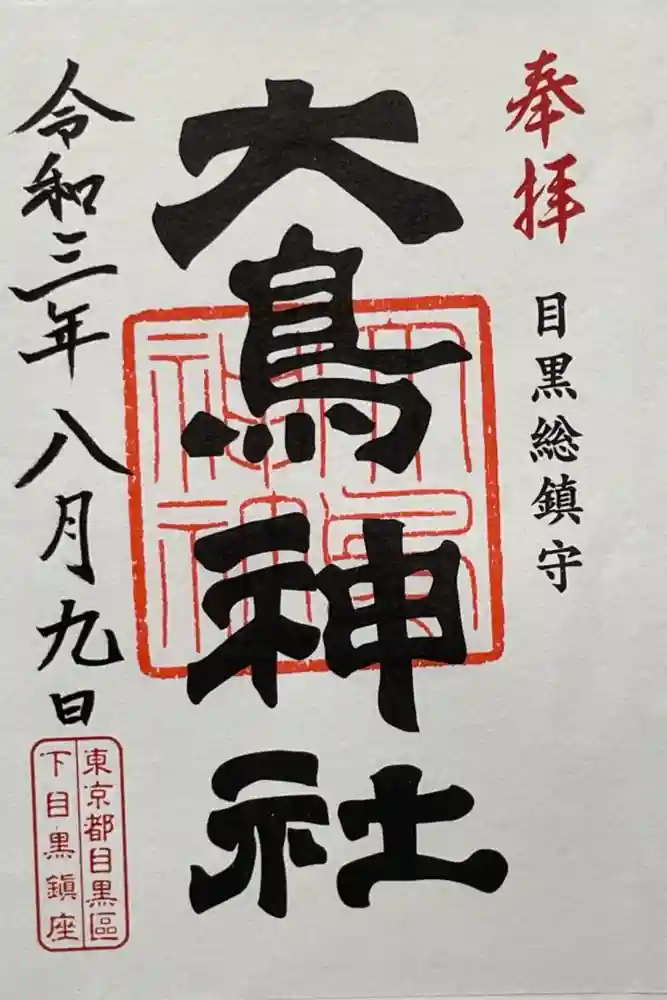 奉拝
目黒総鎮守
大鳥神社
令和三年八月九日
東京都目黒區
下目黒鎭座